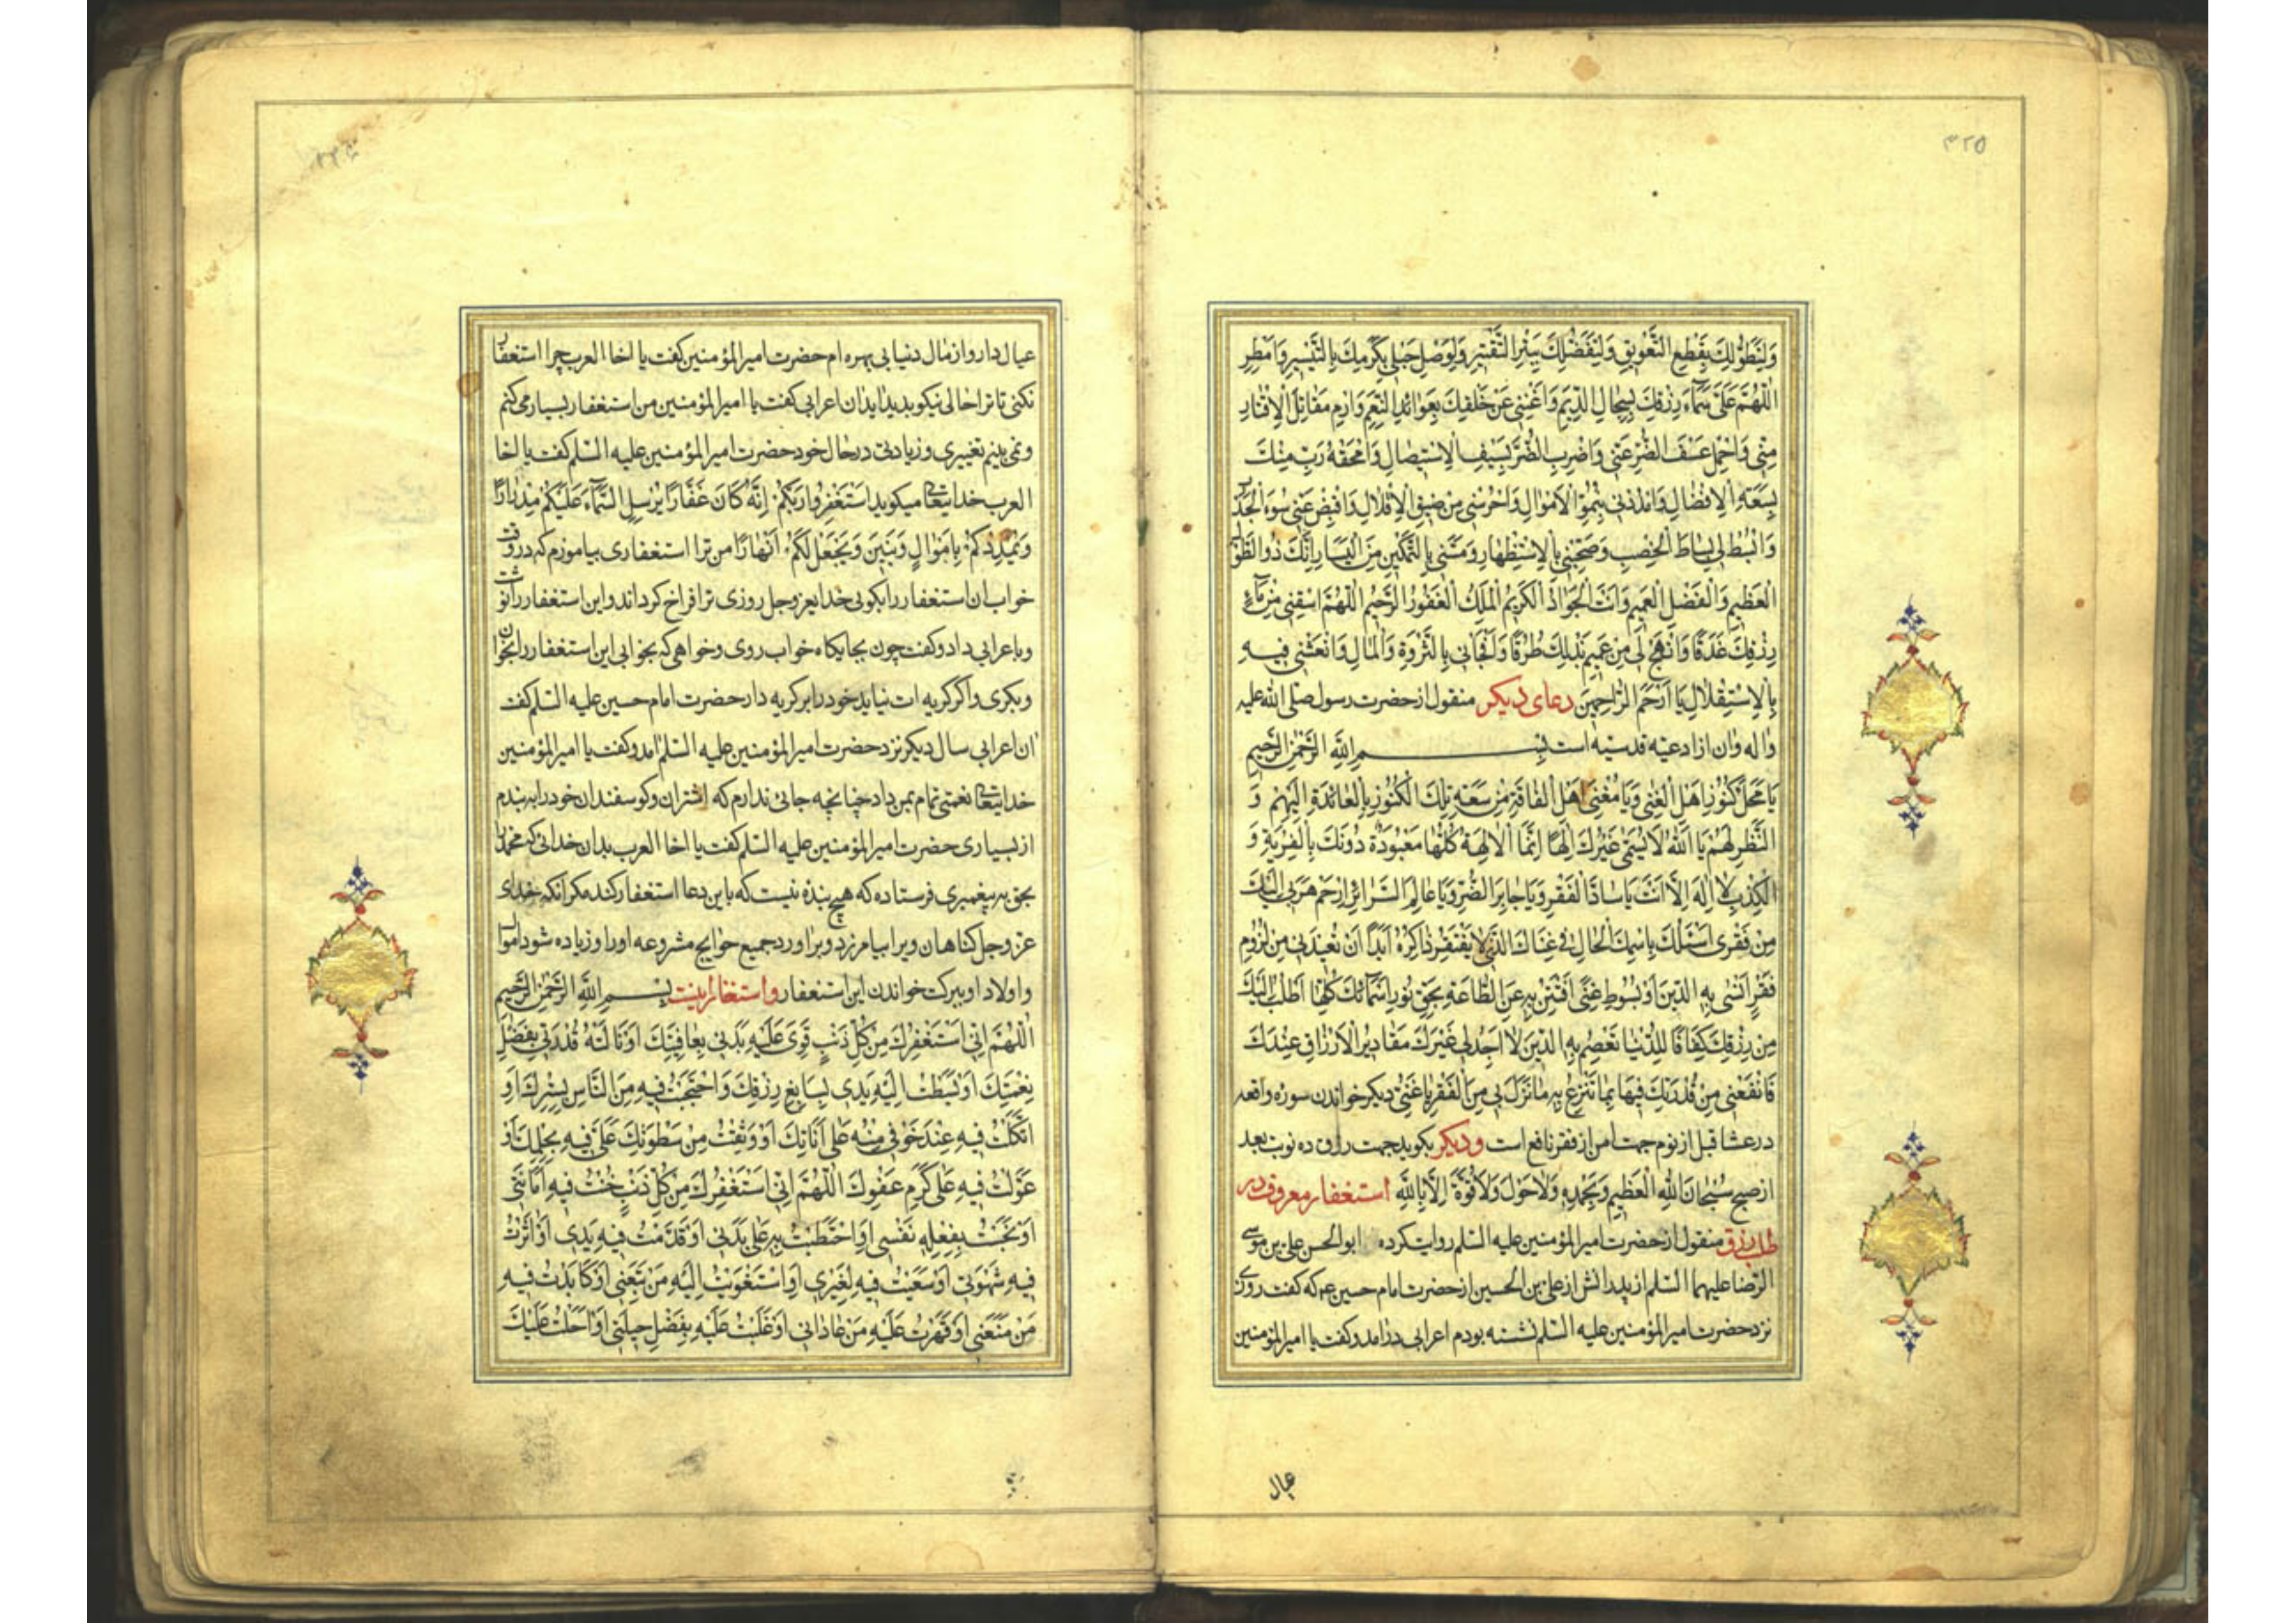 ۳۲۵
وَلِتَطَوُّلِكَ بِقَطْعِ التَّعْوِيقِ وَلِتَفَضُّلِكَ بِبَتْرِ التَّقْتِيرِ وَلِوَصْلِ حَبْلِي بِكَرَمِكَ بِالتَّيْسِيرِ وَاَمْطِرِ
اَللّٰهُمَّ عَلَیَّ سَمَآءَ رِزْقِكَ بِسِجَالِ الدِّيَمِ وَاَغْنِنِي عَنْ خَلْقِكَ بِعَوَائِدِ النِّعَمِ وَارْمِ مَقَاتِلَ الْاِقْتَارِ
مِنّٖي وَاحْمِلْ عَسْفَ الضُّرِّ عَنّٖي وَاضْرِبِ الضُّرَّ بِسَيْفِ الْاِسْتِيصَالِ وَامْحَقْهُ رَبِّ مِنْكَ
بِسَعَةِ الْاِفْضَالِ وَامْدُدْنِي بِنُمُوِّ الْاَمْوَالِ وَاحْرُسْنِي مِنْ ضِيقِ الْاِقْلَالِ وَاقْبِضْ عَنّٖي سُوءَ الْجَدْبِ
وَابْسُطْ لِي بِسَاطَ الْخِصْبِ وَصَحِّبْنِي بِالْاِسْتِظْهَارِ وَمَسِّنِي بِالتَّمْكِينِ مِنَ الْيَسَارِ اِنَّكَ ذُو الطَّوْلِ
الْعَظِيمِ وَالْفَضْلِ الْعَمِيمِ وَاَنْتَ الْجَوَادُ الْكَرِيمُ الْمَلِكُ الْغَفُورُ الرَّحِيمُ اَللّٰهُمَّ اسْقِنِي مِنْ مَآءِ
رِزْقِكَ غَدَقًا وَانْهَجْ لِي مِنْ عَمِيمِ بَذْلِكَ طُرُقًا وَافْجَأْنِي بِالثَّرْوَةِ وَالْمَالِ وَانْعَشْنِي فِيهِ
بِالْاِسْتِقْلَالِ يَا اَرْحَمَ الرَّاحِمِينَ دعای دیكر منقول از حضرت رسول صلی الله علیه
و اله و ان از ادعیه قدسیه است بِسْمِ اللّٰهِ الرَّحْمٰنِ الرَّحِيمِ
يَا مَحَلَّ كُنُوزِ اَهْلِ الْغِنٰى وَيَا مُغْنِيَ اَهْلِ الْفَاقَةِ مِنْ سَعَةِ تِلْكَ الْكُنُوزِ بِالْعَائِدَةِ اِلَيْهِمْ وَ
النَّظَرِ لَهُمْ يَا اَللّٰهُ لَا يُسَمّٰى غَيْرُكَ اِلٰهًا اِنَّمَا الْاٰلِهَةُ كُلُّهَا مَعْبُودَةٌ دُونَكَ بِالْفِرْيَةِ وَ
الْكَذِبِ لَا اِلٰهَ اِلَّا اَنْتَ يَا سَادَّ الْفَقْرِ وَيَا جَابِرَ الضُّرِّ وَيَا عَالِمَ السَّرَائِرِ ارْحَمْ هَرَبِي اِلَيْكَ
مِنْ فَقْرِي اَسْئَلُكَ بِاسْمِكَ الْحَالِّ فِي غِنَاكَ الَّذِي لَا يَفْتَقِرُ ذَاكِرُهُ اَبَدًا اَنْ تُعِيذَنِي مِنْ لُزُومِ
فَقْرٍ اَنْسٰى بِهِ الدِّينَ اَوْ بُسُوطِ غِنًى اَفْتَتِنُ بِهِ عَنِ الطَّاعَةِ بِحَقِّ نُورِ اَسْمَائِكَ كُلِّهَا اَطْلُبُ اِلَيْكَ
مِنْ رِزْقِكَ كَفَافًا لِلدُّنْيَا تَعْصِمُ بِهِ الدِّينَ لَا اَجِدُ لِي غَيْرَكَ مَقَادِيرُ الْاَرْزَاقِ عِنْدَكَ
فَانْفَعْنِي مِنْ قُدْرَتِكَ فِيهَا بِمَا تَنْزِعُ بِهِ مَا نَزَلَ بِي مِنَ الْفَقْرِ يَا غَنِيُّ دیكر خواندن سوره واقعه
در عشا قبل از نوم جهت امن از فقر نافع است و دیكر بكوید جهت رزق ده نوبت بعد
از صبح سُبْحَانَ اللّٰهِ الْعَظِيمِ وَبِحَمْدِهِ وَلَا حَوْلَ وَلَا قُوَّةَ اِلَّا بِاللّٰهِ استغفار معروف در
طلب رزق منقول از حضرت امیرالمؤمنین علیه السلم روایت كرده ابوالحسن علی بن موسی
الرضا علیهما السلم از پدرانش از علی بن الحسین از حضرت امام حسین ع م كه كفت روزی
نزد حضرت امیرالمؤمنین علیه السلم نشسته بودم اعرابی درامد و كفت یا امیرالمؤمنین
عیال
عیال دارو از مال دنیا بی بهره ام حضرت امیرالمؤمنین كفت یا اخا العرب چرا استغفار
نكنی تا ترا حالی نیكو بدید اید ان اعرابی كفت یا امیرالمؤمنین من استغفار بسیار می كنم
و نمی بینم تغییری و زیادتی در حال خود حضرت امیرالمؤمنین علیه السلم كفت یا اخا
العرب خدایتعالی میكوید اِسْتَغْفِرُوا رَبَّكُمْ اِنَّهُ كَانَ غَفَّارًا يُرْسِلِ السَّمَآءَ عَلَيْكُمْ مِدْرَارًا
وَيُمْدِدْكُمْ بِاَمْوَالٍ وَبَنِينَ وَيَجْعَلْ لَكُمْ اَنْهَارًا من ترا استغفاری بیاموزم كه در وقت
خواب ان استغفار را بكوئی خدای عز وجل روزی ترا فراخ كرداند و این استغفار را نوشت
و باعرابی داد و كفت چون بجایكاه خواب روی و خواهی كه بخوابی این استغفار را بخوان
و بكری و اكر كریه ات نیاید خود را بر كریه دار حضرت امام حسین علیه السلم كفت
ان اعرابی سال دیكر نزد حضرت امیرالمؤمنین علیه السلم امد و كفت یا امیرالمؤمنین
خدایتعالی نعمتی تمام بمن داد چنانچه جائی ندارم كه اشتران و كوسفندان خود را به بندم
از بسیاری حضرت امیرالمؤمنین علیه السلم كفت یا اخا العرب بدان خدائی كه محمد را
بحق به پیغمبری فرستاده كه هیچ بنده نیست كه باین دعا استغفار كند مكر انكه خدای
عز وجل كناهان ویرا بیامرزد و براورد جمیع حوایج مشروعه او را و زیاده شود اموال
و اولاد او ببركت خواندن این استغفار و استغفار اینست بِسْمِ اللّٰهِ الرَّحْمٰنِ الرَّحِيمِ
اَللّٰهُمَّ اِنّٖي اَسْتَغْفِرُكَ مِنْ كُلِّ ذَنْبٍ قَوِيَ عَلَيْهِ بَدَنِي بِعَافِيَتِكَ اَوْ نَالَتْهُ قُدْرَتِي بِفَضْلِ
نِعْمَتِكَ اَوْ بَسَطْتُ اِلَيْهِ يَدِي بِسَابِغِ رِزْقِكَ وَاحْتَجَبْتُ فِيهِ مِنَ النَّاسِ بِسِتْرِكَ اَوِ
اتَّكَلْتُ فِيهِ عِنْدَ خَوْفِي مِنْهُ عَلٰى اَنَاتِكَ اَوْ وَثِقْتُ مِنْ سَطْوَتِكَ عَلَیَّ فِيهِ بِحِلْمِكَ اَوْ
عَوَّلْتُ فِيهِ عَلٰى كَرَمِ عَفْوِكَ اَللّٰهُمَّ اِنّٖي اَسْتَغْفِرُكَ مِنْ كُلِّ ذَنْبٍ خُنْتُ فِيهِ اَمَانَتِي
اَوْ بَخَسْتُ بِفِعْلِهِ نَفْسِي اَوِ احْتَطَبْتُ بِهِ عَلٰى بَدَنِي اَوْ قَدَّمْتُ فِيهِ يَدِي اَوْ اٰثَرْتُ
فِيهِ شَهْوَتِي اَوْ سَعَيْتُ فِيهِ لِغَيْرِي اَوِ اسْتَغْوَيْتُ اِلَيْهِ مَنْ تَبِعَنِي اَوْ كَابَدْتُ فِيهِ
مَنْ مَنَعَنِي اَوْ قَهَرْتُ عَلَيْهِ مَنْ عَادَانِي اَوْ غَلَبْتُ عَلَيْهِ بِفَضْلِ حِيلَتِي اَوْ اَحَلْتُ عَلَيْكَ